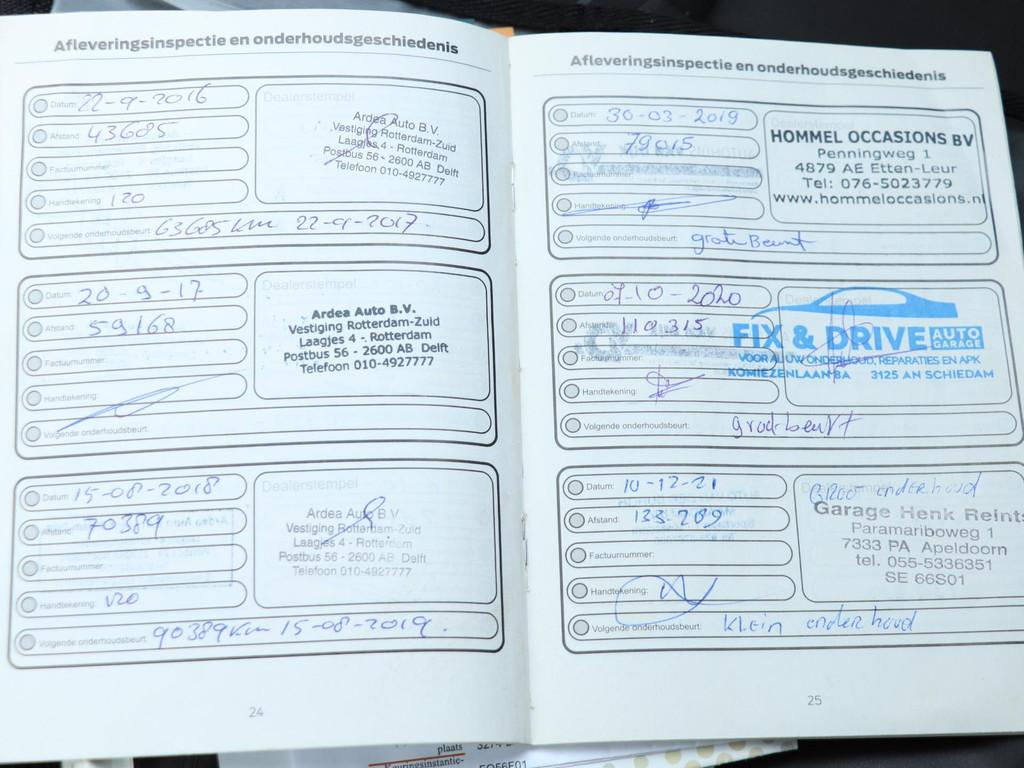 Afleveringsinspectie en onderhoudsgeschiedenis
Datum: 22-9-2016
Afstand: 43685
Factuurnummer:
Handtekening: 120
Volgende onderhoudsbeurt: 63685 km 22-9-2017.
Dealerstempel
Ardea Auto B.V.
Vestiging Rotterdam-Zuid
Laagjes 4 - Rotterdam
Postbus 56 - 2600 AB Delft
Telefoon 010-4927777
Datum: 20-9-17
Afstand: 59168
Factuurnummer:
Handtekening:
Volgende onderhoudsbeurt:
Dealerstempel
Ardea Auto B.V.
Vestiging Rotterdam-Zuid
Laagjes 4 - Rotterdam
Postbus 56 - 2600 AB Delft
Telefoon 010-4927777
Datum: 15-08-2018
Afstand: 70389
Factuurnummer:
Handtekening: V20
Volgende onderhoudsbeurt: 90389 km 15-08-2019.
Dealerstempel
Ardea Auto B.V.
Vestiging Rotterdam-Zuid
Laagjes 4 - Rotterdam
Postbus 56 - 2600 AB Delft
Telefoon 010-4927777
24
Afleveringsinspectie en onderhoudsgeschiedenis
Datum: 30-03-2019
Afstand: 79015
Factuurnummer:
Handtekening:
Volgende onderhoudsbeurt: grote Beurt
HOMMEL OCCASIONS BV
Penningweg 1
4879 AE Etten-Leur
Tel: 076-5023779
www.hommeloccasions.nl
Datum: 07-10-2020
Afstand: 110315
Factuurnummer:
Handtekening:
Volgende onderhoudsbeurt: groot beurt
FIX & DRIVE AUTO GARAGE
VOOR AL UW ONDERHOUD, REPARATIES EN APK
3125 AN SCHIEDAM
Datum: 10-12-21
Afstand: 133.209
Factuurnummer:
Handtekening:
Volgende onderhoudsbeurt: Klein onderhoud
onderhoud
Garage Henk Reints
Paramariboweg 1
7333 PA Apeldoorn
tel. 055-5336351
SE 66S01
25
plaats
Keuringsinstantie-